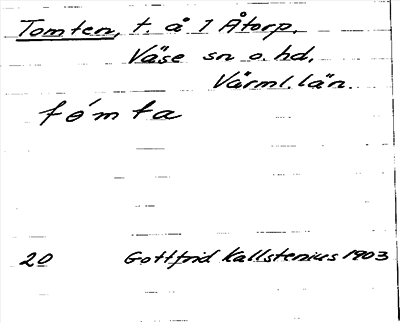 Tomten, t. å 1 Åtorp.
Väse sn o. hd.
Värml. län.
tómta
20 Gottfrid Kallstenius 1903